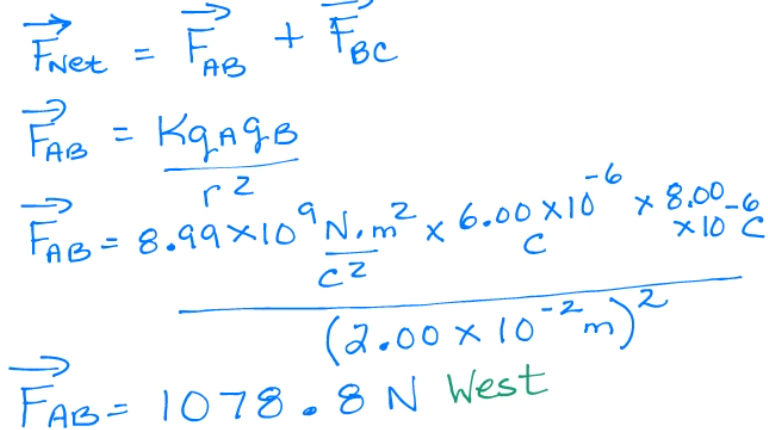 F⃗Net = F⃗AB + F⃗BC
F⃗AB = KqAqB / r²
F⃗AB = 8.99×10⁹ N.m²/C² × 6.00×10⁻⁶ C × 8.00×10⁻⁶ C / (2.00×10⁻² m)²
F⃗AB = 1078.8 N West